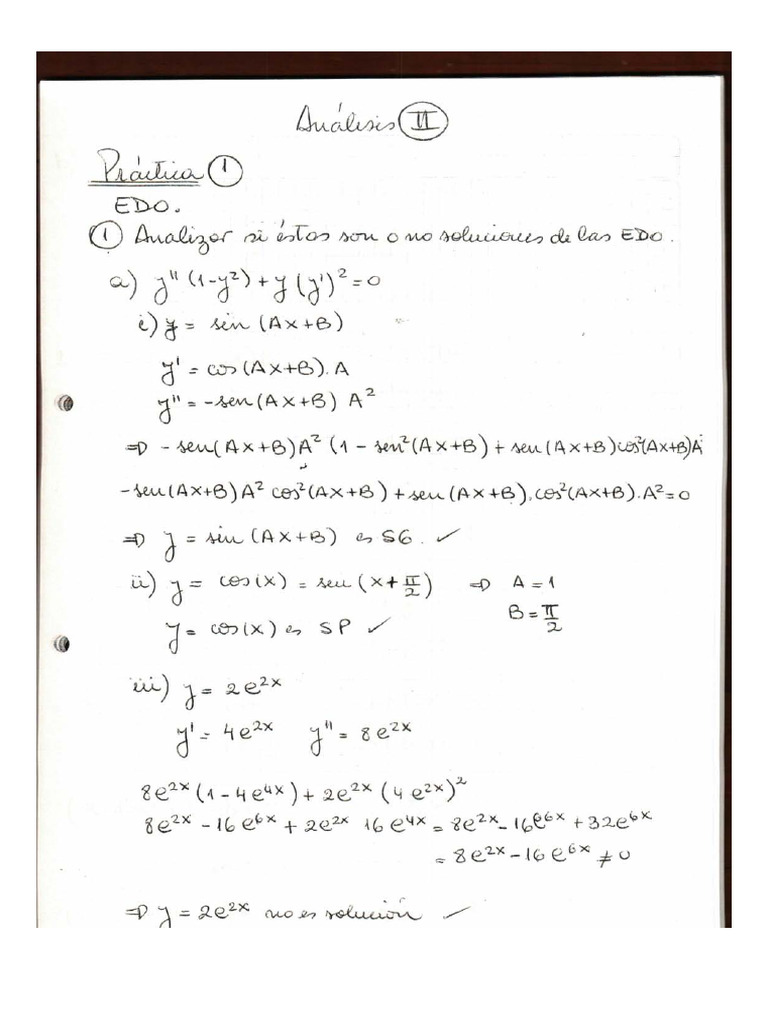 Análisis II
Práctica 1
EDO.
1 Analizar si éstas son o no soluciones de las EDO.
a) y'' (1-y²) + y (y')² = 0
i) y = sin (Ax+B)
y' = cos(Ax+B). A
y'' = -sen(Ax+B) A²
⇒ - sen(Ax+B)A² (1 - sen²(Ax+B) + sen(Ax+B)cos²(Ax+B)A²
-sen(Ax+B)A² cos²(Ax+B) + sen(Ax+B).cos²(Ax+B).A² = 0
⇒ y = sin (Ax+B) es SG. ✓
ii) y = cos(x) = sen (x+π/2) ⇒ A = 1
B = π/2
y = cos(x) es SP ✓
iii) y = 2e²ˣ
y' = 4e²ˣ y'' = 8e²ˣ
8e²ˣ (1-4e⁴ˣ) + 2e²ˣ (4e²ˣ)²
8e²ˣ - 16e⁶ˣ + 2e²ˣ 16e⁴ˣ = 8e²ˣ - 16e⁶ˣ + 32e⁶ˣ
= 8e²ˣ - 16e⁶ˣ ≠ 0
⇒ y = 2e²ˣ no es solución ✓